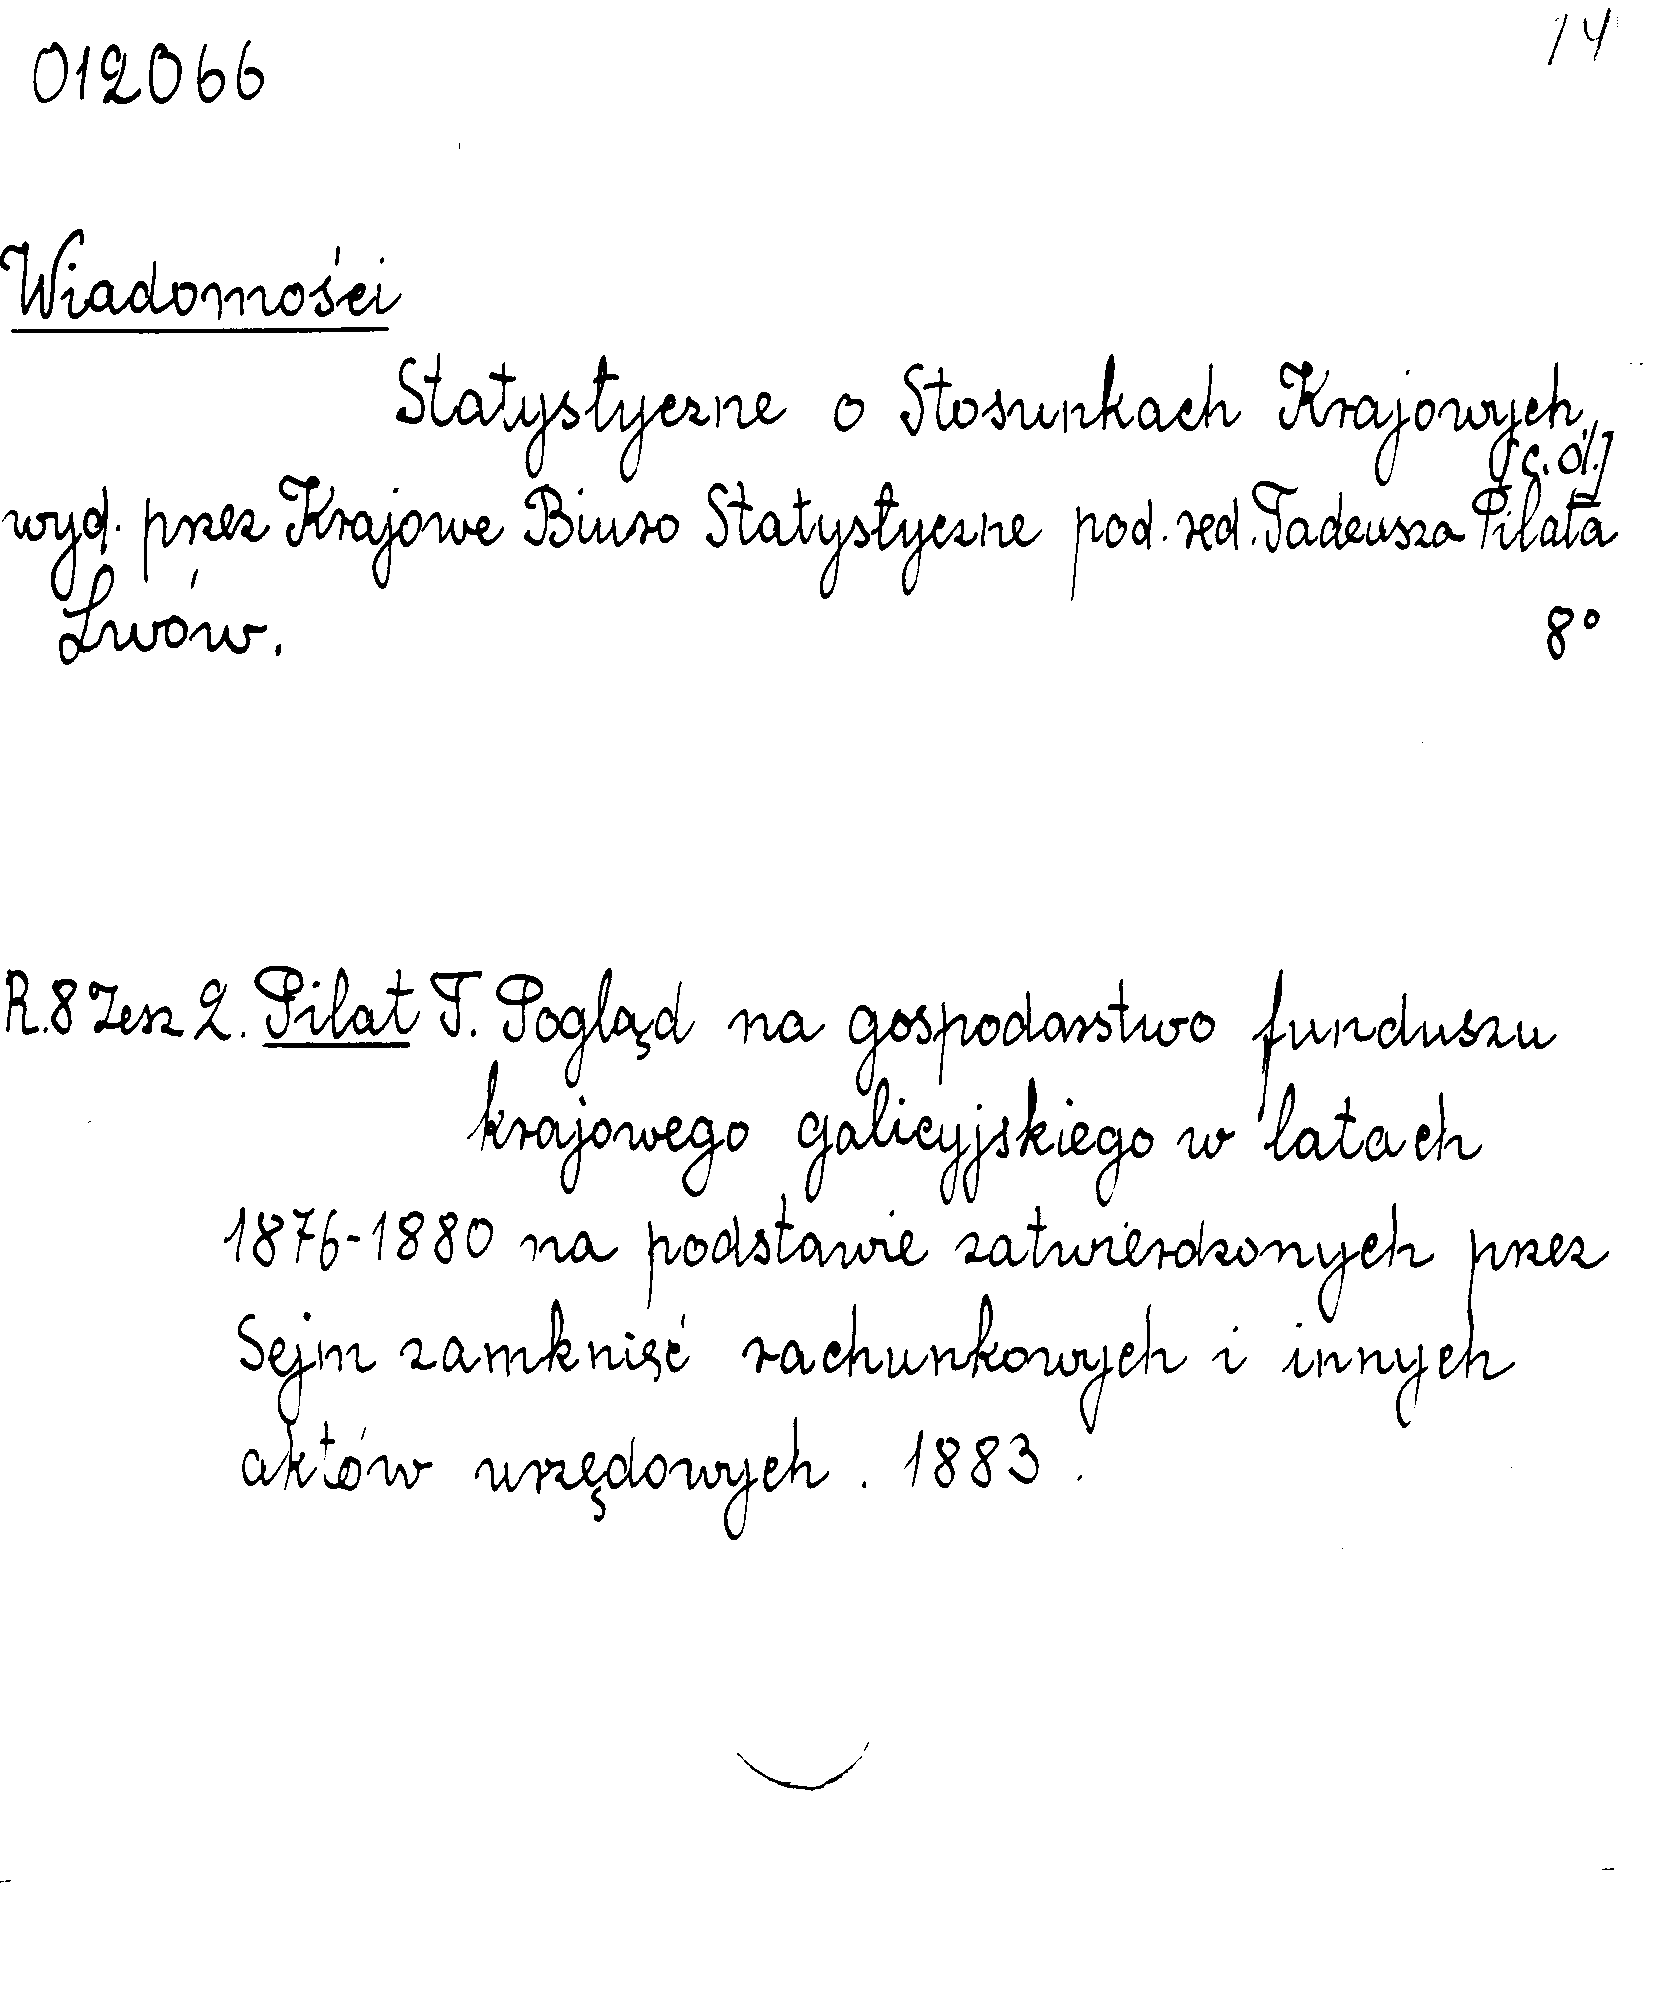 14
012066
Wiadomości
Statystyczne o Stosunkach Krajowych,
[c. d.]
wyd. przez Krajowe Biuro Statystyczne pod. red. Tadeusza Pilata
Lwów. 8°
R.8 Zesz 2. Pilat T. Pogląd na gospodarstwo funduszu
krajowego galicyjskiego w latach
1876-1880 na podstawie zatwierdzonych przez
Sejm zamknięć rachunkowych i innych
aktów urzędowych. 1883.